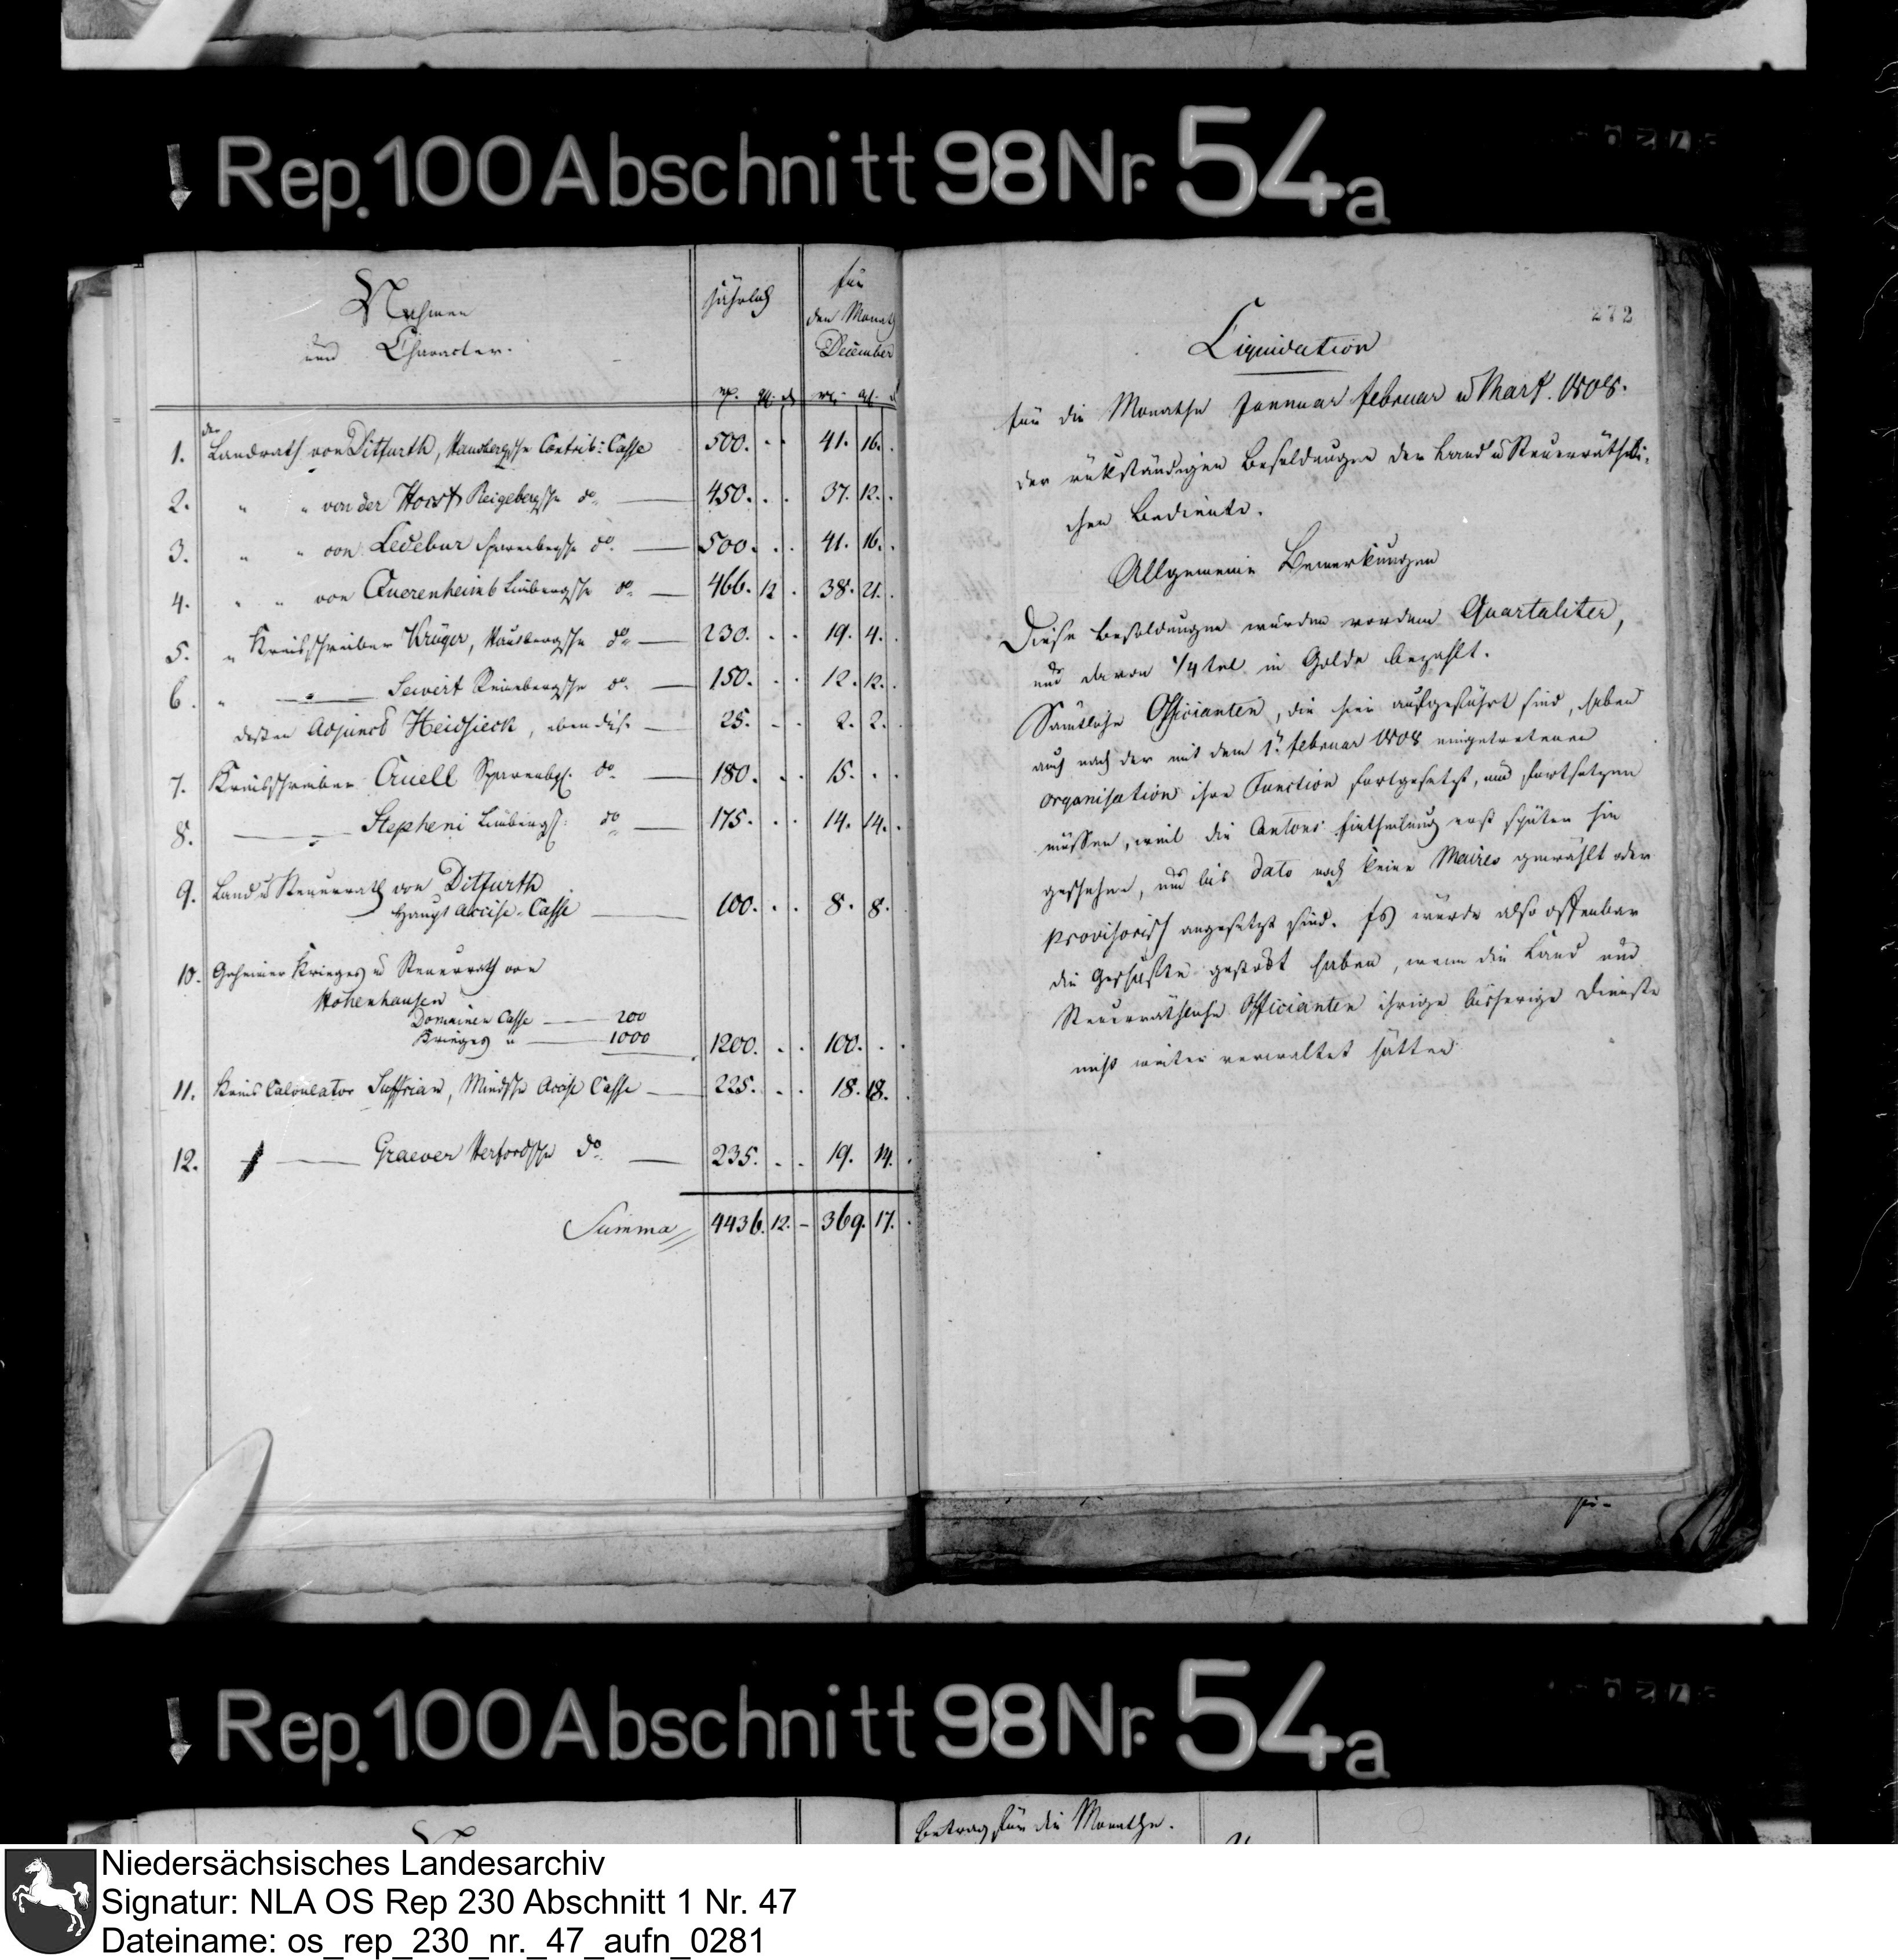 Rep. 100 Abschnitt 98 Nr. 54a
Nahmen
und Character.
jährlich
für
den Monath
December
rt. ggl. d
rt. ggl. d
1. der Landrath von Ditfurth, Hausbergsche Contrib: Casse 500. . . 41. 16. .
2. " " von der Horst Reigebergsche do. 450. . . 37. 12. .
3. " " von Ledebur Sparenbergsche do. 500. . . 41. 16. .
4. " " von Querenheimb Limbergsche do. 466. 12 . 38. 21. .
5. " Kreisschreiber Krüger, Hausbergsche do. 230. . . 19. 4. .
6. " " Seivert Reinebergsche do. 150. . . 12. 12. .
dessen Adjunct Heidsieck, eben dies. 25. - . 2. 2. .
7. Kreisschreiber Cruell Sparenbg. do. 180. . . 15. . .
8. " Stepheni Limbergs: do 175. . . 14. 14. .
9. Land u Steuerrath von Ditfurth
Haupt Accise-Casse 100. . . 8. 8. .
10. Geheimer Krieges u Steuerrath von
Hohenhausen
Domainen Casse 200
Krieges " 1000 1200. . . 100. . .
11. Kreis Calculator Suffrian, Mindsche Accise Casse 225. . . 18. 18. .
12. Graever Herfordsche do. 235. . . 19. 14. .
Summa 4436. 12. - 369. 17. .
272
Liquidation
für die Monathe Januar februar u Mart. 1808.
der rükständigen Besoldungen der Land u Steuerräthli-
chen Bediente.
Allgemeine Bemerkungen
Diese Besoldungen wurden vordem Quartaliter,
und davon 1/4tel in Golde bezahlt.
Sämtliche Officianten, die hier aufgeführt sind, haben
auch nach der mit dem 1t. februar 1808 eingetretenen
organisation ihre Function fortgesetzt, und fortsetzen
müssen, weil die Cantons Eintheilung erst später hin
geschehen, und bis dato noch keine Maires gewählt oder
provisorisch angesetzt sind. Es würde also offenbar
die Geschäfte gestokt haben, wenn die Land und
Steuerräthliche Officianten ihrige bisherige Dienste
nicht weiter verwaltet hätten
Rep. 100 Abschnitt 98 Nr. 54a
Betrag für die Monathe.
Niedersächsisches Landesarchiv
Signatur: NLA OS Rep 230 Abschnitt 1 Nr. 47
Dateiname: os_rep_230_nr._47_aufn_0281